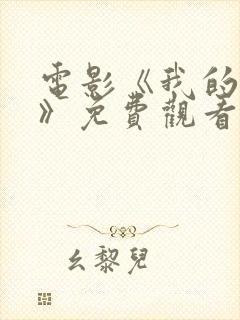 電影《我的
》免費觀看
幺黎兒